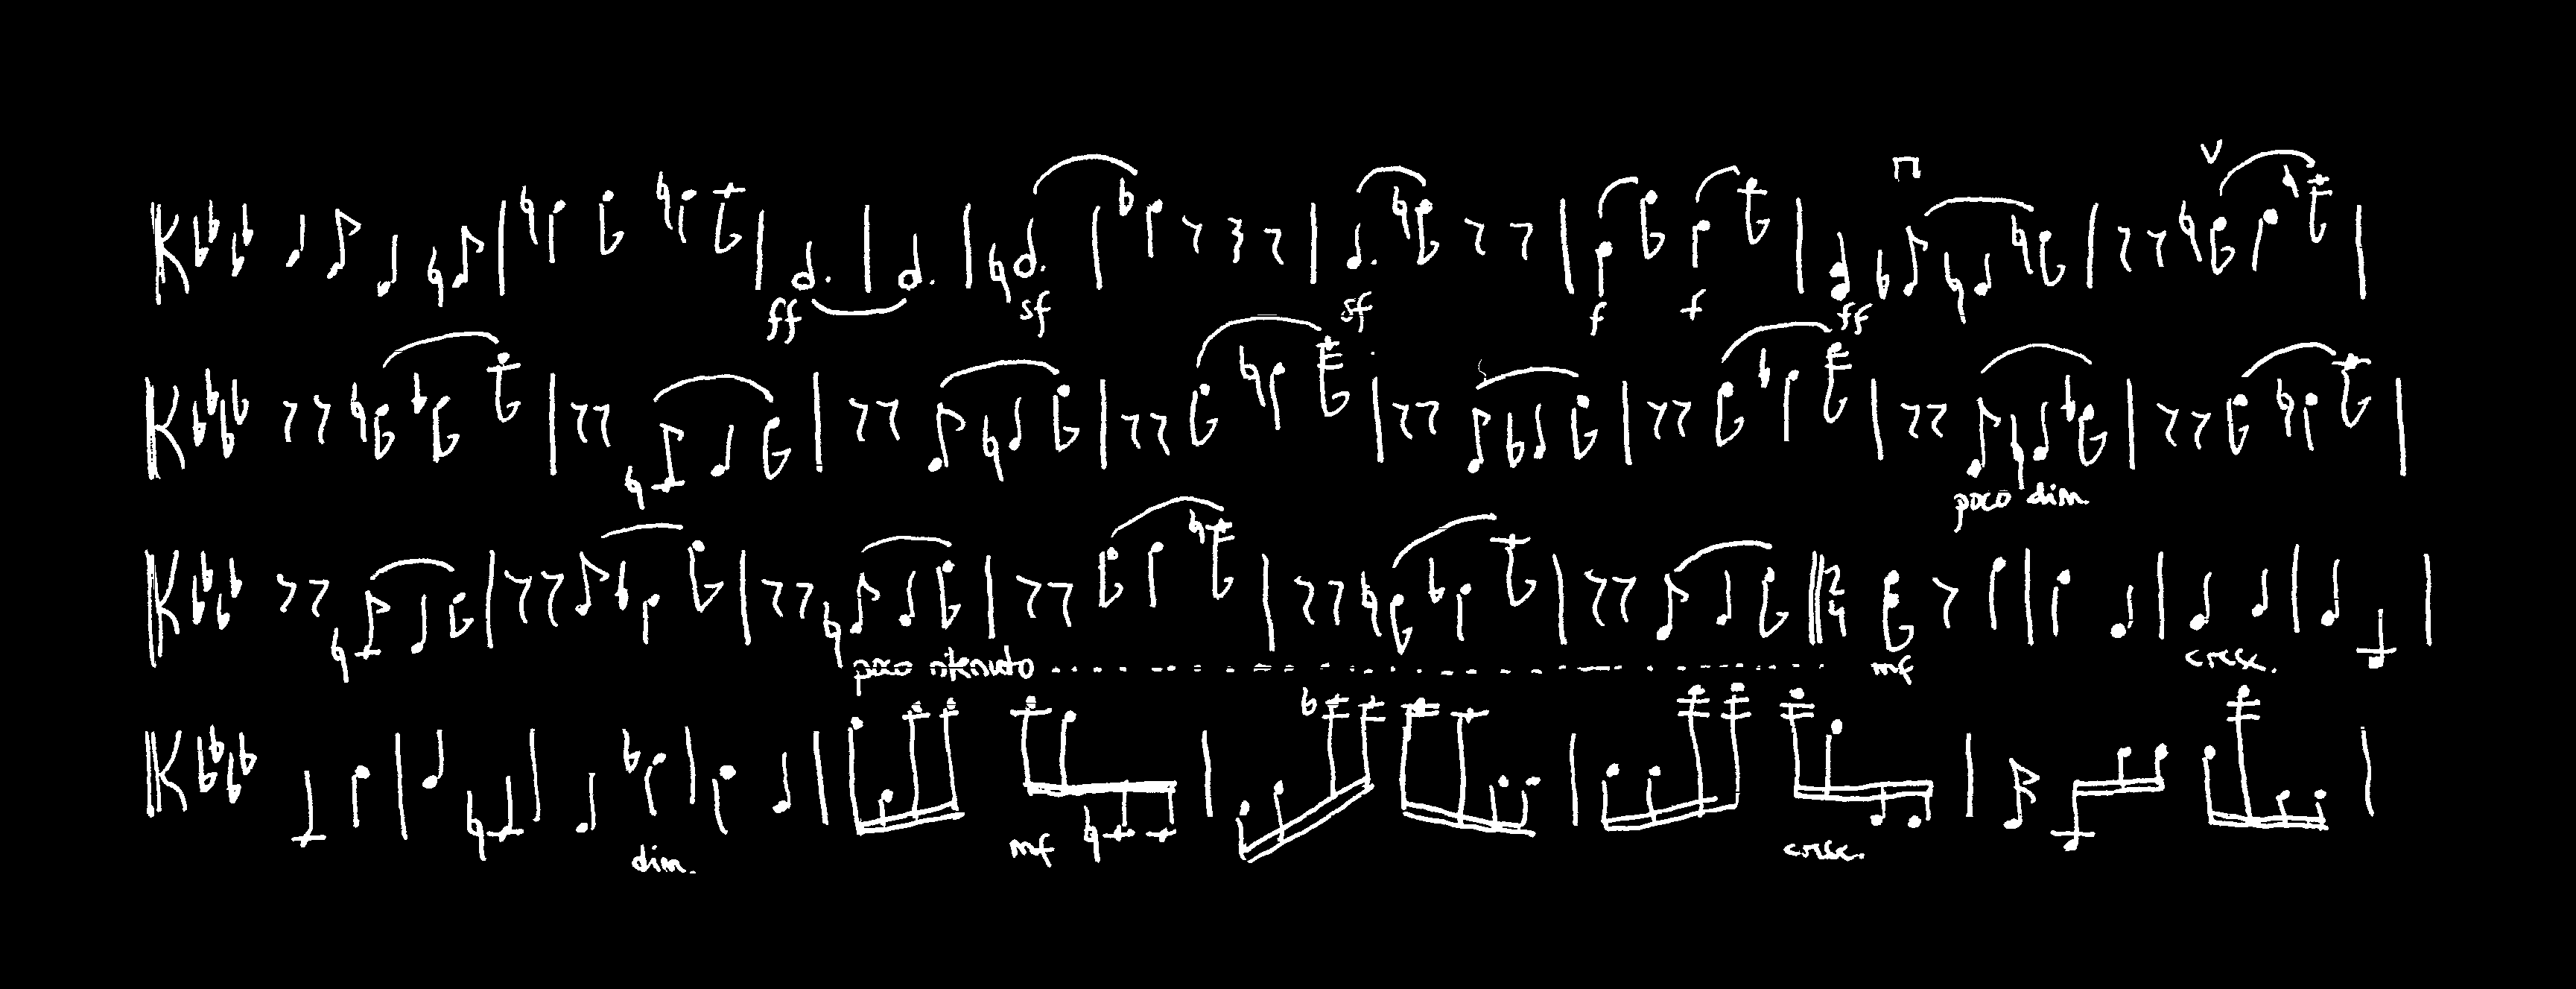 ff sf sf f f ff
poco dim.
poco ritenuto mf cresc.
dim. mf cresc.